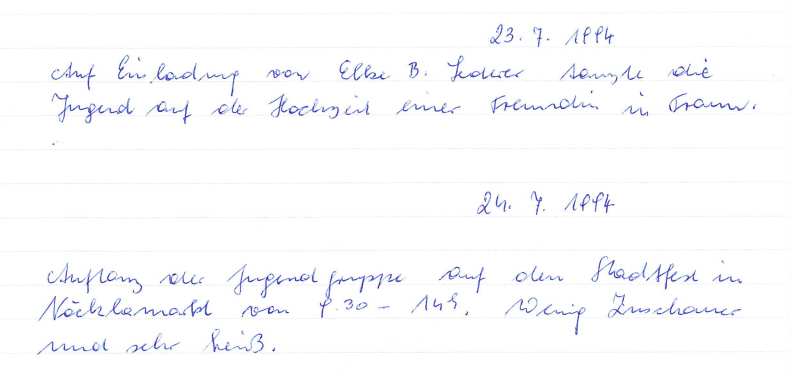 23. 7. 1994
Auf Einladung von Elke B. Lederer tanzte die
Jugend auf der Hochzeit einer Freundin in Traun.
24. 7. 1994
Auftanz der Jugendgruppe auf den Stadtfest in
Vöcklamarkt von 9.30 - 14h. Wenig Zuschauer
und sehr heiß.